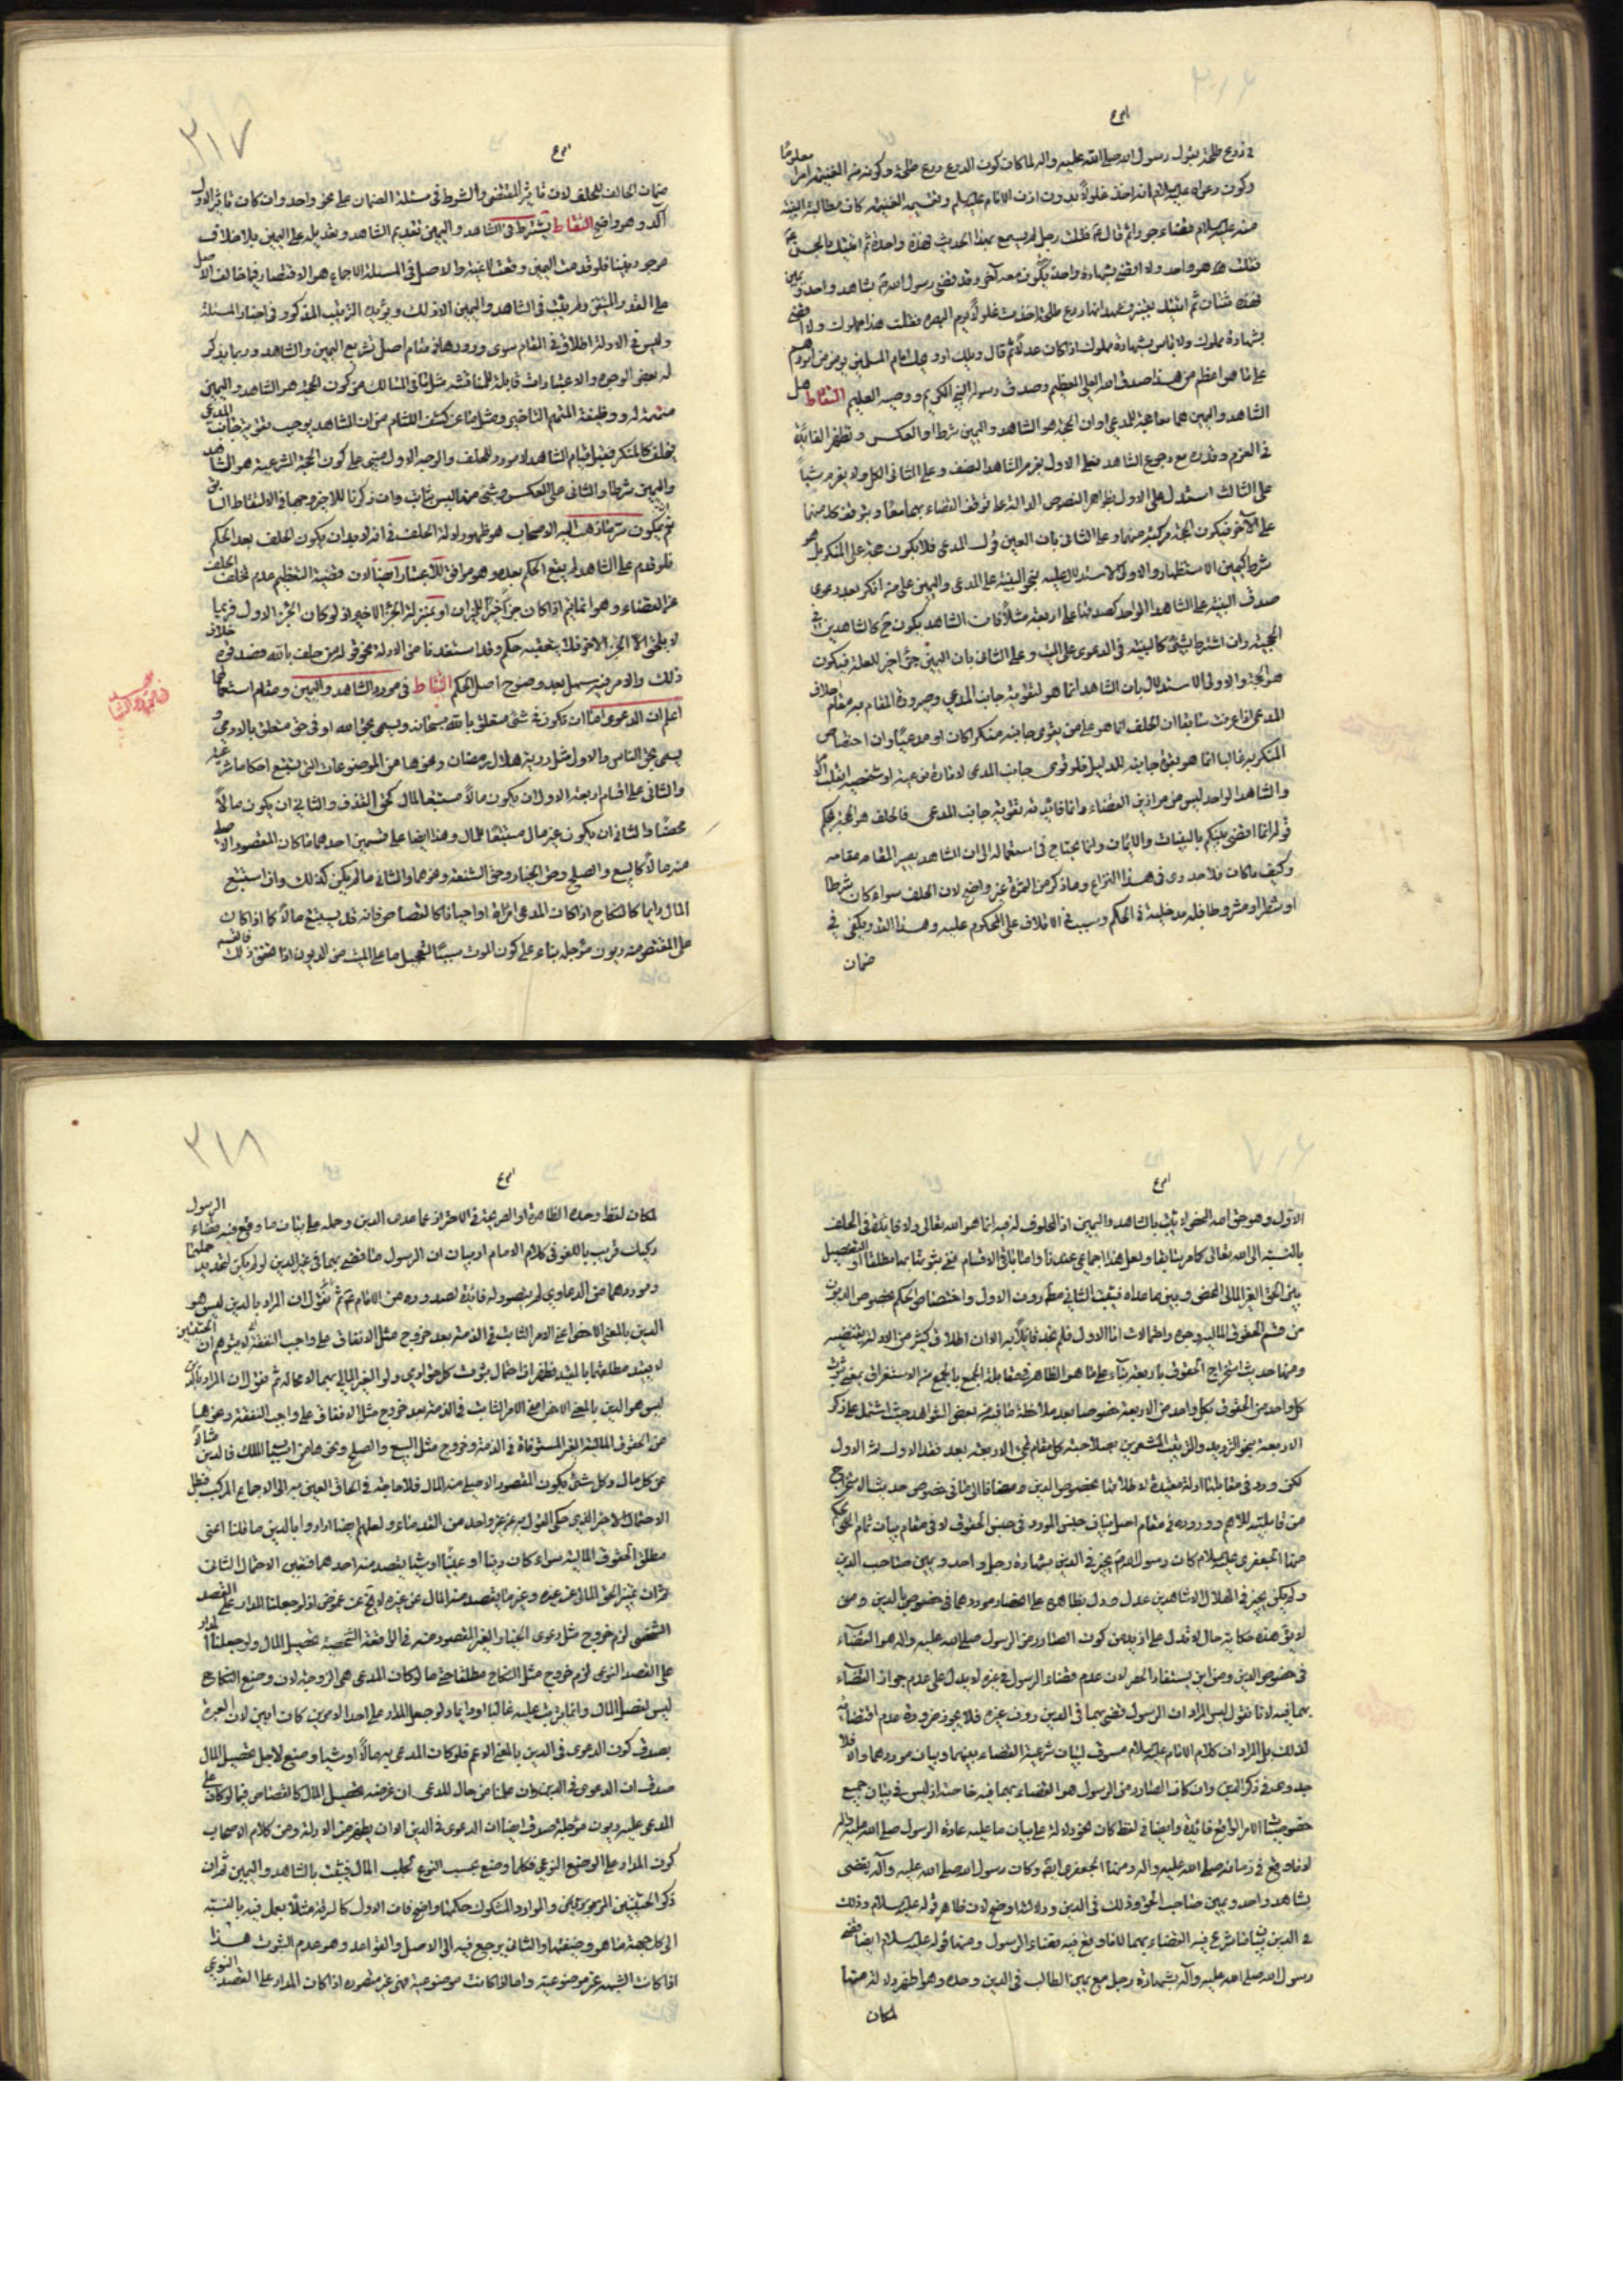 في درع طلحة بقول رسول الله صلى الله عليه واله لما كان كون الدرع درع طلحة وكونه من الغنيمة امرا معلوما
وكون دعواه عليه السلام انه اخذ غلولا بدون اذن الامام عليه السلم وتقسيم الغنيمة كان مطالبة البينة
منه عليه السلام بقضاء جور ثم قال فقلت رجل لم يسمع بهذا الحديث فهذه واحدة ثم اتيتك بالحسن
فقلت هذا هو واحد ولا اقضي بشهادة واحد حتى يكون معه آخر وقد قضى رسول الله بشاهد واحد ويمين
فهذه ثنتان ثم اتيتك بقنبر فشهد انها درع طلحة اخذت غلولا يوم البصرة فقلت هذا مملوك ولا اقضي
بشهادة مملوك ولا باس بشهادة مملوك اذا كان عدلا ثم قال ويلك او ويحك امام المسلمين يؤمن من امورهم
على ما هو اعظم من هذا صدق الله العلي العظيم وصدق رسوله النبي الكريم ووصيه العليم التقاط هل
الشاهد واليمين هما معا حجة للمدعي او ان الحجة هو الشاهد واليمين شرط او العكس وتظهر الفائدة
في الغرم وقدره مع رجوع الشاهد فعلى الاول يغرم الشاهد النصف وعلى الثاني الكل ولا يغرم شيئا
على الثالث استدل على الاول بظواهر النصوص الدالة على توقف القضاء بهما معا وتوقف كل منهما
على الآخر فيكون الحجة مركبة منهما وعلى الثاني بان اليمين قول المدعي فلا يكون حجة على المنكر بل هو
شرط كيمين الاستظهار والاول الاستدلال عليه بنحو البينة على المدعي واليمين على من انكر بعد دعوى
صدق البينة على الشاهد الواحد كصدقها على اربعة مثلا فان الشاهد يكون ح كالشاهدين في
الحجية وان اشترط بشئ كالبينة في الدعوى على الميت وعلى الثاني بان اليمين جزء اخير للعلة فيكون
هو الحجة والاولى الاستدلال بان الشاهد انما هو لتقوية جانب المدعي وصيرورة المقام به مقام حلاف
المدعي اذ عرفت سابقا ان الحلف انما هو على من يقوى جانبه منكرا كان او مدعيا وان اختصاص
المنكر به غالبا انما هو بقوة جانبه للدليل فلو قوى جانب المدعي لامارة نوعية او شخصية انقلب الامر
والشاهد الواحد ليس من موازين القضاء وانما فائدته تقوية جانب المدعي فالحلف هو الحجة بحكم
قوله انما اقضي بينكم بالبينات والايمان وانما يحتاج في استعماله الى ان الشاهد يصير المقام مقامه
وكيف ما كان فلا جدوى في هذا النزاع وما ذكر من الثمرة غير واضح لان الحلف سواء كان شرطا
او شطرا او مشروطا فله مدخلية في الحكم وسبب في الاتلاف على المحكوم عليه وهذا القدر يكفي في
ضمان
٣١٧
ضمان الحالف للحلف لان تاثير المقتضي والشرط في مسئلة الضمان على نحو واحد وان كان تاثير الاول
آكد وهو واضح التقاط يشترط في الشاهد واليمين تقديم الشاهد وتعديله على اليمين بلا خلاف
موجود بيننا فلو قدمت اليمين وقعت لاغية والاصل في المسئلة الاجماع هو الاقتصار فيما خالف الاصل
على القدر المتيقن ولم يثبت في الشاهد واليمين الا ذلك ويؤيده الترتيب المذكور في اخبار المسئلة
وليس في الادلة اطلاق في المقام سوى ورودها في مقام اصل تشريع اليمين والشاهد وربما يذكر
له بعض الوجوه والاعتبارات قابلة للمناقشة مثل ما في المسالك من كون الحجة هو الشاهد واليمين
متممة له ووظيفة المتمم التاخير ومثل ما عن كشف اللثام من ان الشاهد يوجب تقوية جانب المدعي
فيحلف كالمنكر فقبل قيام الشاهد لا مورد للحلف والوجه الاول مبني على كون الحجة الشرعية هو الشاهد
واليمين شرطا والثاني على العكس وشئ منهما ليس بثابت وان ذكرنا للاخير وجها في الالتقاط السابق
نعم يمكون سر ما ذهب اليه الاصحاب هو ظهور ادلة الحلف في انه لا بد ان يكون الحلف بعد الحكم
فلو قدم على الشاهد لم يقع الحكم بعده وهو موافق للاعتبار ايضا لان قضية التعظيم عدم تخلف الحلف
عن القضاء وهو انما يتم اذا كان جزءا اخيرا للميزان او بمنزلة الجزء الاخير اذ لو كان الجزء الاول فربما
لا يلحق الا الجزء الآخر فلا يتعقبه حكم وقد استفدنا من الادلة نحو قوله من حلف بالله فصدقوه خلاف
ذلك والامر فيه سهل بعد وضوح اصل الحكم التقاط في مورد الشاهد واليمين ومقام استعمالهما
اعلم ان الدعوى اما ان تكون في شئ متعلق بالله سبحانه ويسمى بحق الله او في حق متعلق بالآدمي و
يسمى بحق الناس والاول مثل رؤية هلال رمضان ونحوها من الموضوعات التي يتبع احكاما شرعية
والثاني على اقسام اربعة الاول ان يكون مالا مستتبعا لمال كحق القذف والثاني ان يكون مالا
محضا والثالث ان يكون غير مال مستتبعا لمال وهذا ايضا على قسمين احدهما ما كان المقصود الاصلي
منه مالا كالبيع والصلح وحق الخيار وحق الشفعة ونحوهما والثاني ما لم يكن كذلك وان استتبع
المال دايما كالنكاح اذا كان المدعي امراة او احيانا كالقصاص فانه قد يستتبع مالا كما اذا كان
على المقتص منه ديون مؤجلة بناء على كون الموت سببا لتعجيل ما على الميت من الديون اذا تحقق ذلك فالقسم
في مورد الشا
الاول وهو حق الله المحض لا يثبت بالشاهد واليمين اذ المحلوف له فيه انما هو الله تعالى ولا فايدة في الحلف
بالنسبة الى الله تعالى كما مر سابقا ولعل هذا اجماعي عندنا واما باقي الاقسام ففي ثبوتها بهما مطلقا او التفصيل
بين الحق الغير المالي المحض وبين ما عداه فيثبت الثاني مطلقا دون الاول واختصاص الحكم بخصوص الديون
من قسم الحقوق المالية وجوه واحتمالات اما الاول فلم نجد قائلا به الا ان اطلاق كثير من الادلة يقتضيه
ومنها حديث استخراج الحقوق باربعة بناء على ما هو الظاهر في مقابلة الجمع بالجمع من الاستغراق بمعنى ثبوت
كل واحد من الحقوق بكل واحد من الاربعة خصوصا بعد ملاحظة ما فيه من بعض الشواهد حيث اشتمل على ذكر
الاربعة بنحو الترديد والترتيب المشعرين بصلاحية كل مقام لجئ الاربعة بعد فقد الاول نثر الاول
لكن ورد في مقابلها ادلة مقيدة لاطلاقها بخصوص الدين ومضافا الى ما في خصوص حديث الاستخراج
من قابليته للاهم ووروده في مقام اصل بيان جنس المورد في جنس الحقوق لا في مقام بيان تمام الحكم
منها الجعفري عليه السلام كان رسول الله يجيز في الدين بشهادة رجل واحد ويمين صاحب الدين
ولم يكن يجيز في الهلال الا شاهدين عدل ودل بظاهره على انحصار موردهما في خصوص بالدين ومن
لايق هذه حكاية حال لا تدل على ازيد من كون الصادر من الرسول صلى الله عليه واله هو القضاء
في خصوص الدين ومن اين يستفاد الحصر لان عدم قضاء الرسول في غيره لا يدل على عدم جواز القضاء
بهما فيه لانا نقول ليس المراد ان الرسول قضى بهما في الدين دون غيره فلا يجوز ضرورة عدم اقتضائه
لذلك بل المراد ان كلام الامام عليه السلام مسوق لبيان شرعية القضاء بينهما وبيان موردهما والا فلا
جدوى في ذكر الدين وان كان الصادر من الرسول هو القضاء بهما فيه خاصة اذ ليس في بيان جميع
خصوصيات الامر الواقع فائدة وايضا في لفظ كان نحو دلالة على بيان ما عليه عادة الرسول صلى الله عليه واله
لا ما وقع في زمانه صلى الله عليه واله ومنها الجعفري ايضا وكان رسول الله صلى الله عليه وآله يقضي
بشاهد واحد ويمين صاحب الحق وذلك في الدين ودلالتها واضح لان ظاهر قوله عليه السلام وذلك
في الدين بيان ما شرع فيه القضاء بهما لا ما وقع فيه بقضاء الرسول ومنها قوله عليه السلام ايضا قضى
رسول الله صلى الله عليه وآله بشهادة رجل مع يمين الطالب في الدين وحده وهو اظهر دلالة منها
لمكان
٣١٨
لمكان لفظ وحده الظاهرة او الصريحة في الاحتراز عما عدى الدين وحمله على بيان ما وقع فيه قضاء الرسول
ركيك قريب باللغو في كلام الامام اذ بيان ان الرسول ما قضى بهما في غير الدين لو لم يكن لتحديد حكمهما
وموردهما من الدعاوي لم يتصور له فائدة لصدوره من الامام ثم نقول ان المراد بالدين ليس هو
الدين بالمعنى الاخص اعني الامر الثابت في الذمة بعد خروج مثل الانفاق على واجب النفقة لا يتوهم ان
لا يقيد مطلقها بالمقيد فظهر ان احتمال ثبوت كل حق آدمي ولو الغير المالي بهما لا محالة ثم نقول ان المراد بالدين
ليس هو الدين بالمعنى الاخص اعني الامر الثابت في الذمة بعد خروج مثل الانفاق على واجب النفقة وغيرها
من الحقوق المالية الغير المستوفاة في الذمة وخروج مثل البيع والصلح ونحوهما من اسباب الملك فالدين
عن كل مال وكل شئ يكون المقصود الاصلي منه المال فلا حاجة في الحاق العين به الى الاجماع المركب فبطل
الاحتمال الاخير الذي حكى القول به غير واحد من القدماء ولعلهم ايضا ارادوا بالدين ما قلنا اعني
مطلق الحقوق المالية سواء كان دينا او عينا او شيئا يقصد منه احدهما فتعين الاحتمال الثاني
ثم ان تميز الحق المالي عن غيره وتميز ما يقصد منه المال عن غيره لا يخ عن غموض اذ لو جعلنا المدار على القصد
الشخصي لزم خروج مثل دعوى الخيار الغير المقصود منه في الواقعة الشخصية تحصيل المال ولو جعلنا المدار
على القصد النوعي لزم خروج مثل النكاح مطلقا حتى ما لو كان المدعي هي الزوجة لان وضع النكاح
ليس لتحصيل المال وانما يترتب عليه غالبا او دايما ولو جعل المدار على احد الامرين كان ابين لان العبرة
بصدق كون الدعوى في الدين بالمعنى الاعم فلو كان المدعى به مالا او شيئا وضع لاجل تحصيل المال
صدق ان الدعوى في الدين وان علمنا من حال المدعي ان غرضه تحصيل المال كالقصاص فيما لو كان على
المدعى عليه ديون مؤجلة صدق ايضا ان الدعوى في الدين الا ان يظهر من الادلة ومن كلام الاصحاب
كون المدار على الوضع النوعي فكلما وضع بحسب النوع لجلب المال فيثبت بالشاهد واليمين ثم ان
ذكر الحيثيتين المرجوتين والموارد المشكوك حكمها واضح فان الاول كالسرقة مثلا يعمل فيه بالنسبة
الى كل جهة ما هو وضيفتها والثاني يرجع فيه الى الاصل والقواعد وهو عدم الثبوت هذا
اذا كانت الشبهة غير موضوعية واما اذا كانت موضوعية فهي غير متصورة اذا كان المدار على القصد النوعي